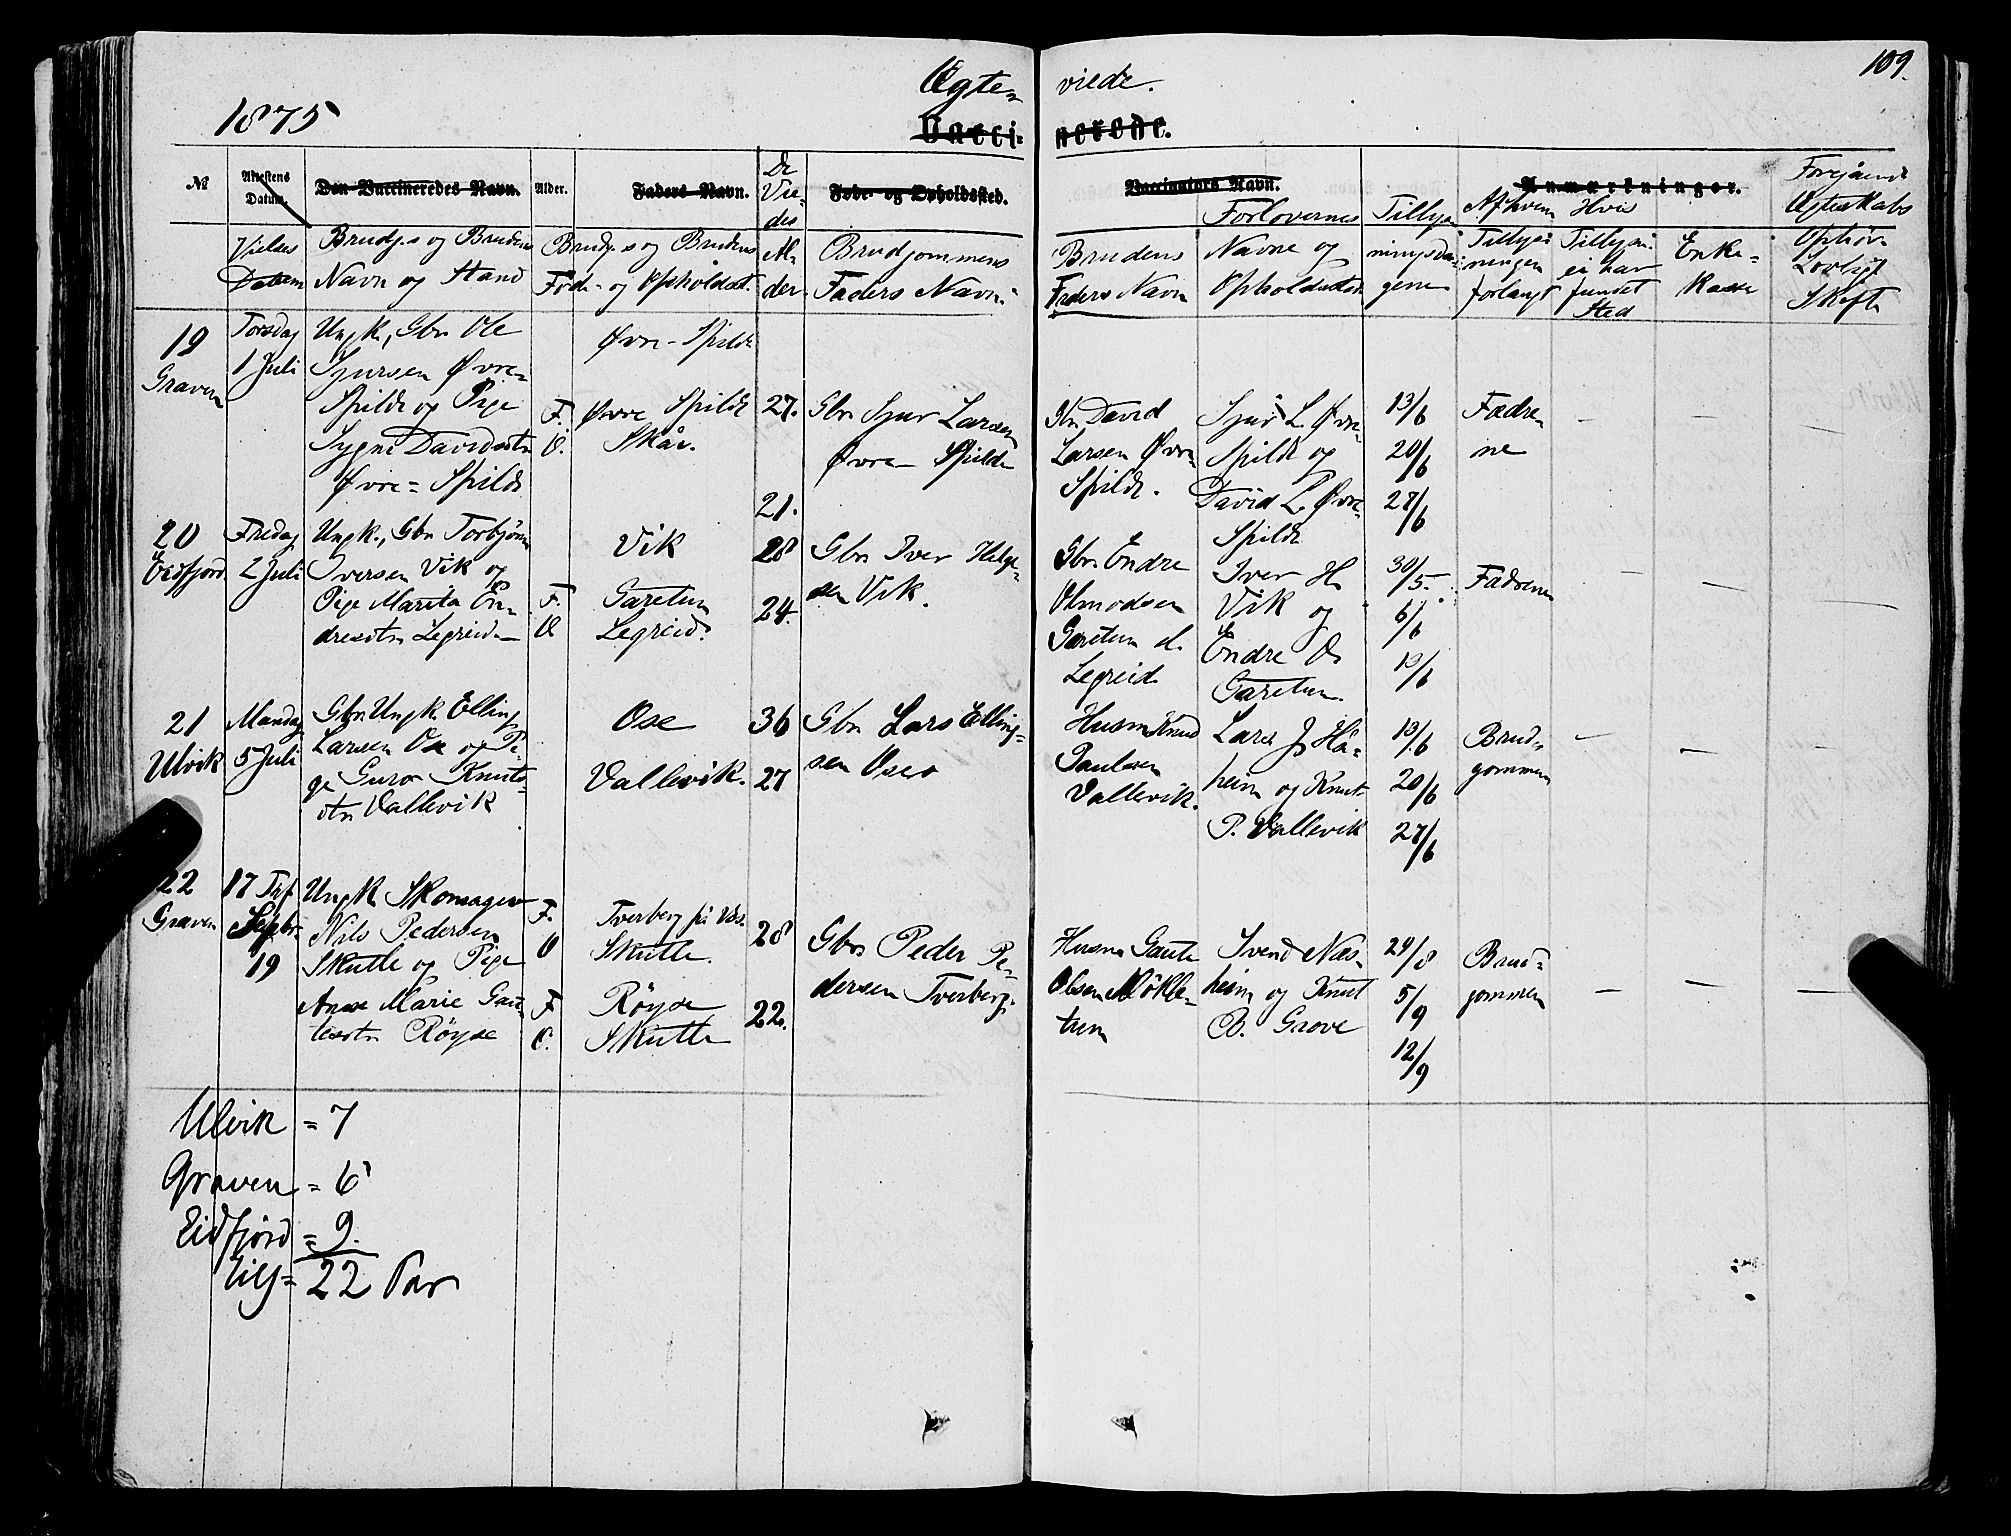 109.
Ægte= viede.
1875
Vacci= nerede.
№
Attestens Datum.
Den Vaccineredes Navn.
Alder.
Faders Navn.
De Vie= des Al= der
Føde- og Opholdssted.
Vaccinators Navn.
Anmærkninger.
Vielses Datum
Brudg.s og Brudens Navn og Stand
Brudg.s og Brudens Føde- og Opholdsst.
Brudgommens Faders Navn.
Brudens Faders Navn
Forlovernes Navne og Opholdssted
Tillys= ningsda= gene
Af hvem Tillys= ningen forlangt
Hvis Tillysn. ei har fundet Sted
Enke= kasse
Foregaaende Ægteskabs Ophør Lovligt Skifte
19
Graven
Torsdag
1 Juli
Ungk., Gbr Ole
Sjursen Øvre=
Spilde og Pige
Sygni Davidsdtr
Øvre= Spilde
Øvre- Spilde
F. Øvre Spilde
O. Skår.
27.
21.
Gbr Sjur Larsen
Øvre- Spilde
Gbr David
Larsen Øvre
Spilde.
Sjur L. Øvre=
Spilde og
David L. Øvre=
Spilde
13/6
20/6
27/6
Fædre
ne
20
Eidfjord
Fredag
2 Juli
Ungk., Gbr Torbjørn
Iversen Vik og
Pige Marita En=
dresdtr Legreid
Vik
F. Garetun
O Legreid.
28
24.
Gbr Iver Helge=
sen Vik.
Gbr Endre
Olmodsen
Garetun el.
Legreid
Iver H.
Vik og
Endre O.
Garetun.
30/5
6/6
13/6
Fædrene
21
Ulvik
Mandag
5 Juli
Gbr Ungk. Elling
Larsen Ose og Pi=
ge Guro Knuts=
dtr Vallevik
Ose
Vallevik.
36
27
Gbr Lars Elling=
sen Ose
Husm Knud
Paulsen
Vallevik.
Lars J. Hå=
heim og Knut
P. Vallevik
13/6
20/6
27/6
Brud=
gommen
22
Graven
17 Trf.
Septbr.
19
Ungk Skomager
Nils Pedersen
Skutle og Pige
Anna Marie Gau=
tesdtr Røyse
F. Tverberg på Vos.
O Skutle.
F Røyse
O. Skutle
28
22.
Gbr Peder Pe=
dersen Tverberg.
Husm Gaute
Olsen Møkle=
tun
Svend Næs=
heim og Knut
B. Grove
29/8
5/9
12/9
Brud=
gommen
Ulvik = 7
Graven = 6
Eidfjord = 9.
Tils= 22 Par